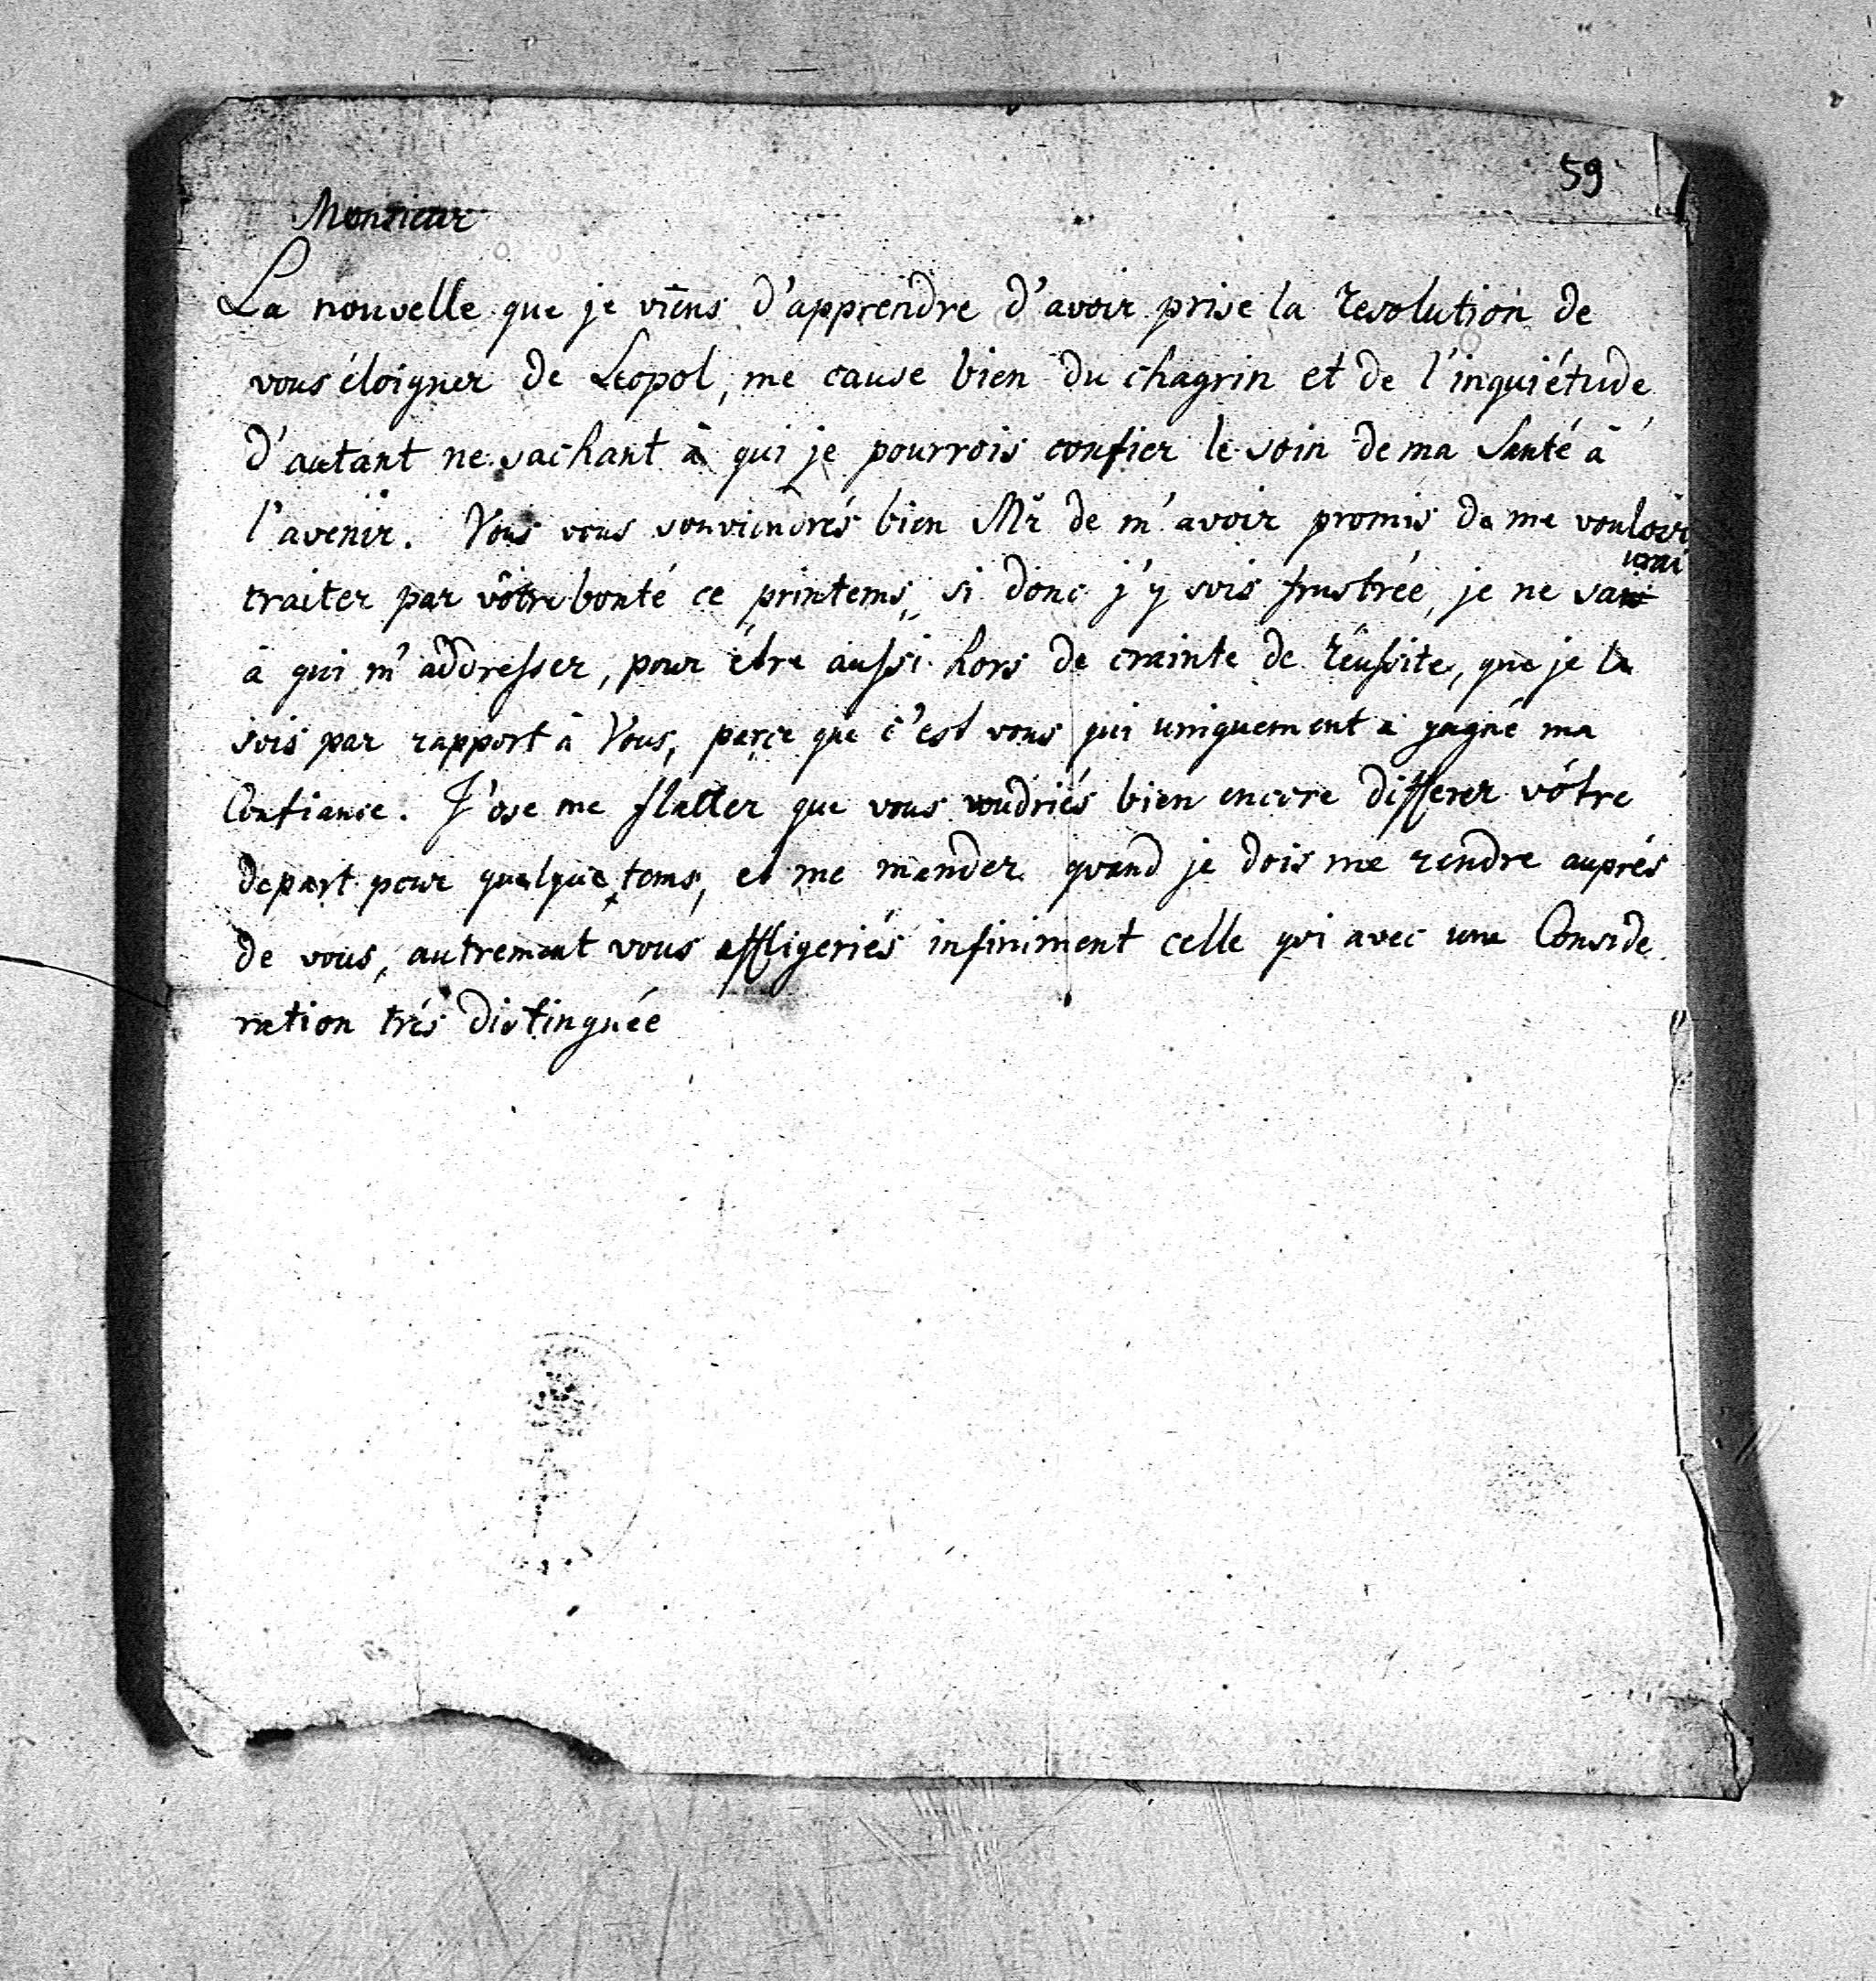 59
Monsieur
La nouvelle que je viens d'apprendre d'avoir prise la resolution de
vous éloigner de Leopol, me cause bien du chagrin et de l'inquiétude
d'autant ne sachant à qui je pourrois confier le soin de ma Santé à
l'avenir. Vous vous souviendrés bien Mr de m'avoir promis de me vouloir
traiter par vôtre bonté ce printems, si donc j'y sois frustrée, je ne saurai
à qui m'addresser, pour être aussi hors de crainte de réussite, que je le
sois par rapport à Vous, parce que c'est vous qui uniquement a gagné ma
Confiance. J'ose me flatter que vous voudriés bien encore differer vôtre
depart pour quelque tems, et me mander quand je dois me rendre auprés
de vous, autrement vous affligeriés infiniment celle qui avec une Conside
ration trés distinguée